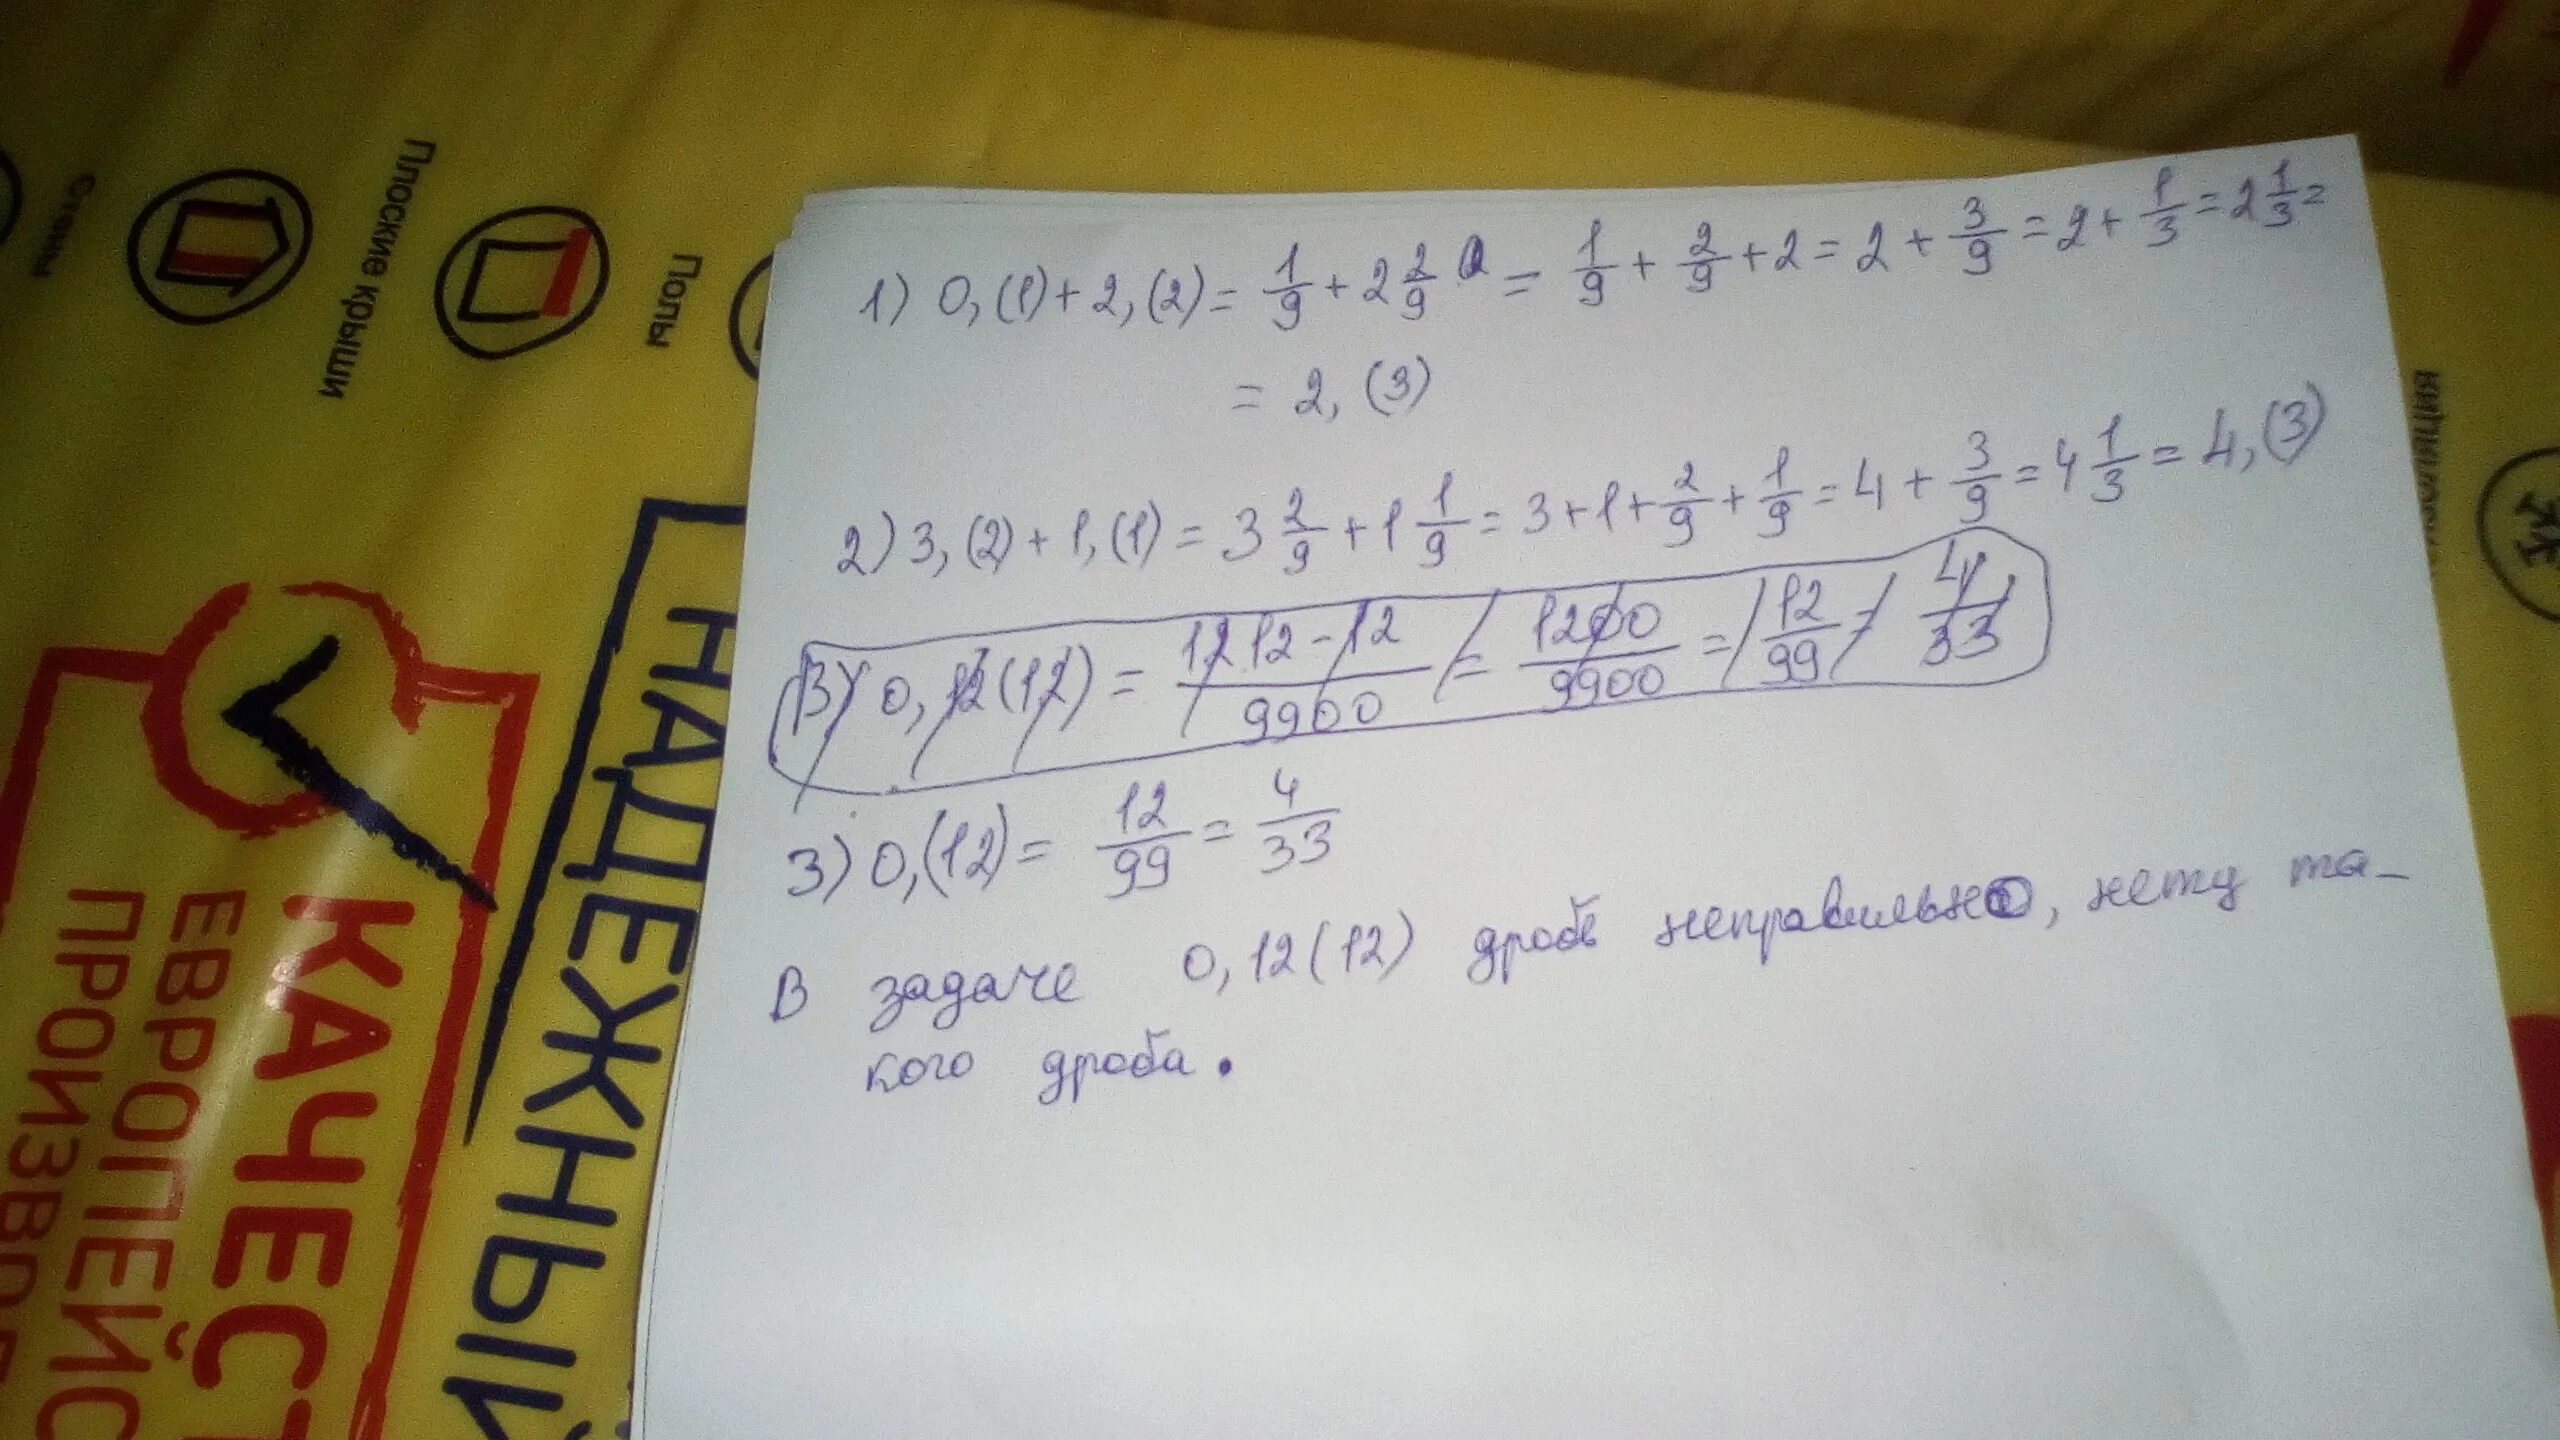 1) 0,(1)+2,(2)= 1/9 + 2 2/9 = 1/9 + 2/9 + 2 = 2 + 3/9 = 2 + 1/3 = 2 1/3 =
= 2,(3)
2) 3,(2)+1,(1) = 3 2/9 + 1 1/9 = 3+1+ 2/9 + 1/9 = 4 + 3/9 = 4 1/3 = 4,(3)
3) 0,12(12) = 1212-12/9900 = 1200/9900 = 12/99 = 4/33
3) 0,(12) = 12/99 = 4/33
В задаче 0,12(12) дробь неправильно, нету та-
кого дроба.
Стены
Плоские крыши
Полы
НАДЕЖНЫЙ
КАЧЕСТ
ЕВРОПЕЙС